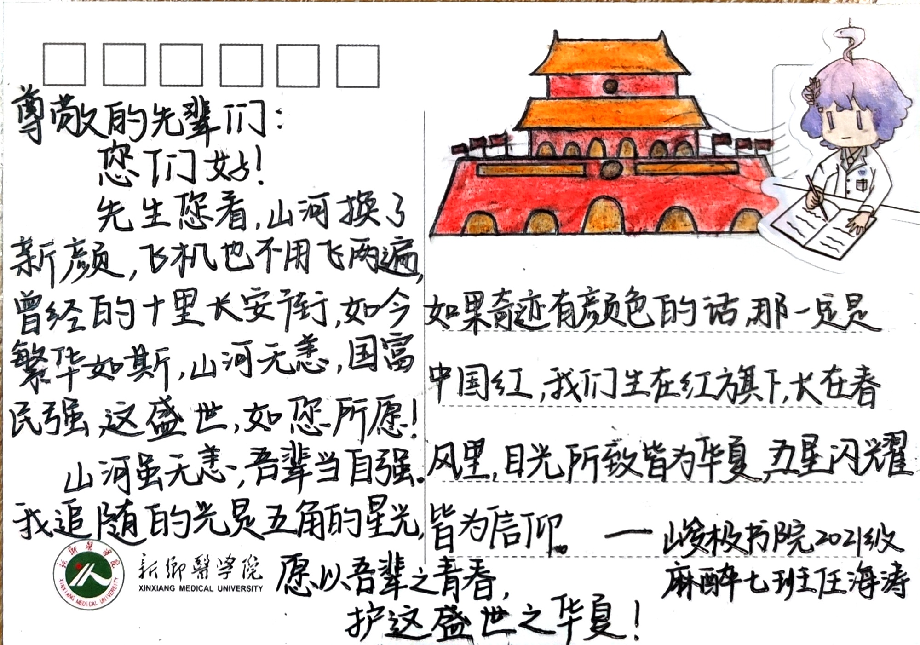 尊敬的先辈们：
您们好！
先生您看，山河换了
新颜，飞机也不用飞两遍，
曾经的十里长安街，如今
繁华如斯，山河无恙，国富
民强，这盛世，如您所愿！
山河虽无恙，吾辈当自强。
我追随的光是五角的星光，
如果奇迹有颜色的话，那一定是
中国红，我们生在红旗下，长在春
风里，目光所致皆为华夏，五星闪耀
皆为信仰。
愿以吾辈之青春，
护这盛世之华夏！
——峻极书院2021级
麻醉七班任海涛
新乡医学院
XINXIANG MEDICAL UNIVERSITY
新乡医学院
XINXIANG MEDICAL UNIVERSITY